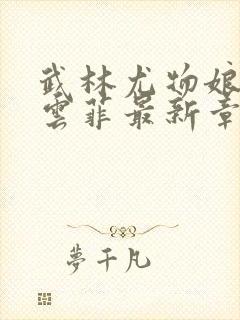 武林尤物娘
雲菲最新章
夢千凡